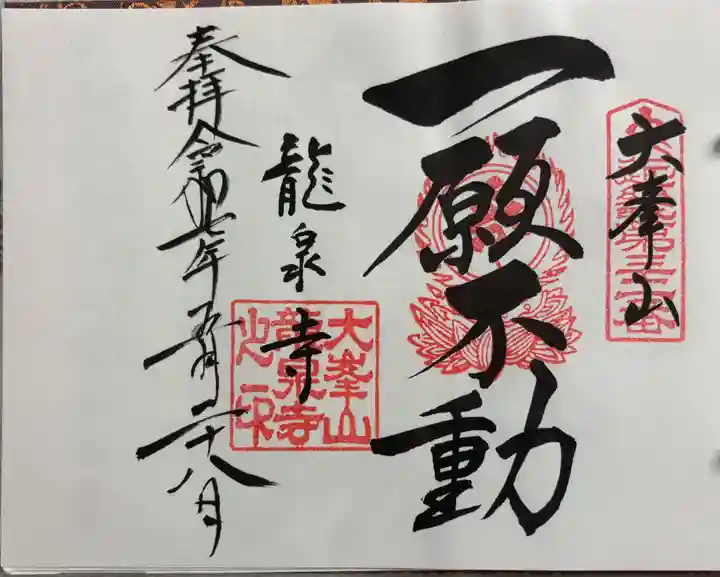 大峯山
一願不動
龍泉寺
奉拝 令和七年五月二十八日
大峯山
龍泉寺